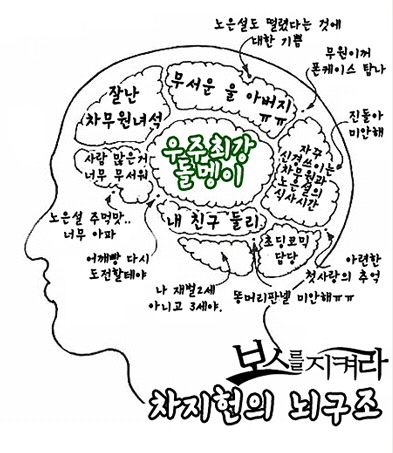 노은설도 떨렸다는 것에
대한 기쁨
무원이꺼
폰케이스 탐나
잘난
차무원녀석
무서운 울 아버지
ㅠㅠ
진돌아
미안해
우주최강
돌멩이
사람 많은거
너무 무서워
자꾸
신경쓰이는
차무원과
노은설의
식사시간
노은설 주먹맛..
너무 아파
내 친구 둘리
초딩코믹
담당
어깨빵 다시
도전할테야
아련한
첫사랑의 추억
나 재벌2세
아니고 3세야.
똥머리판넬 미안해ㅠㅠ
보스를 지켜라
차지헌의 뇌구조